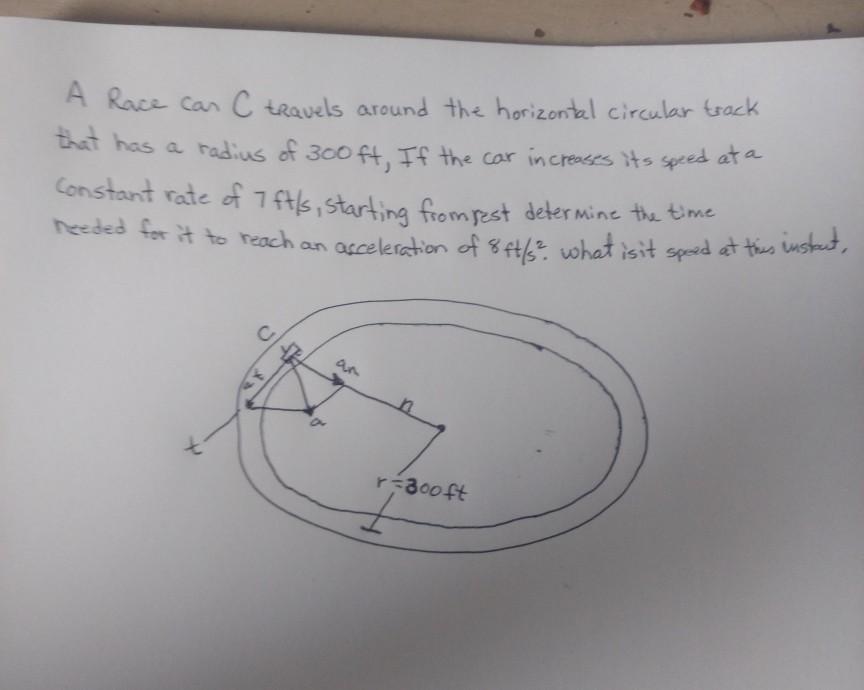 A Race car C travels around the horizontal circular track
that has a radius of 300 ft, If the car increases its speed at a
constant rate of 7 ft/s, starting from rest determine the time
needed for it to reach an acceleration of 8 ft/s². what is it speed at this instant.
C
at
an
n
a
t
r = 300ft